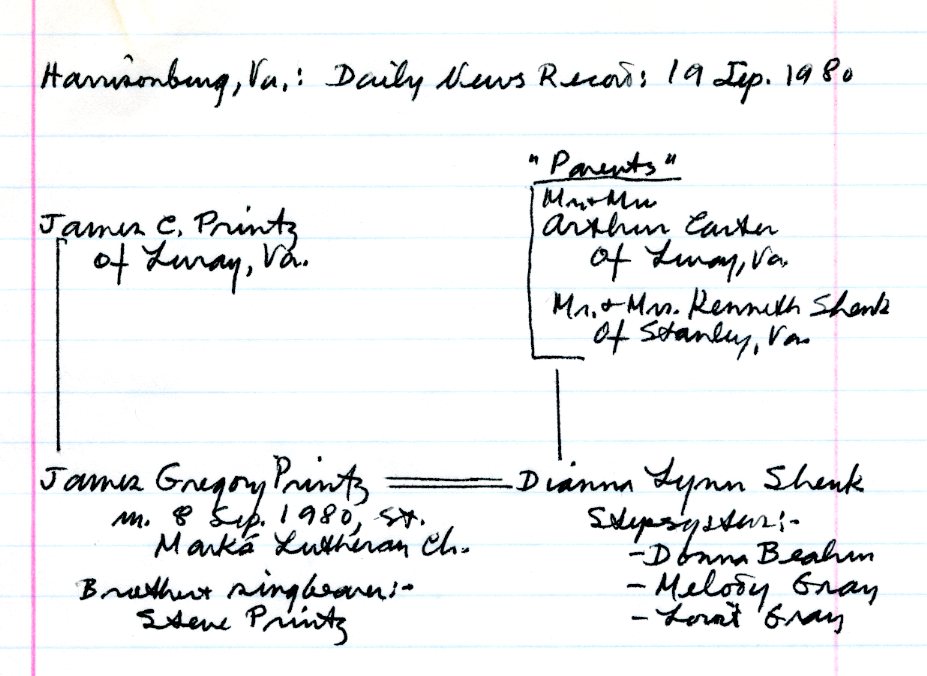 Harrisonburg, Va.: Daily News Record: 19 Sep. 1980
"Parents"
Mr. + Mrs
Arthur Carter
of Luray, Va.
Mr. + Mrs. Kenneth Shenk
of Stanley, Va.
James C. Printz
of Luray, Va.
James Gregory Printz
m. 8 Sep. 1980, St.
Marks Lutheran Ch.
Brother + ringbearer:-
Steve Printz
Dianna Lynn Shenk
Stepsysters:-
- Donna Beahm
- Melody Gray
- Gray